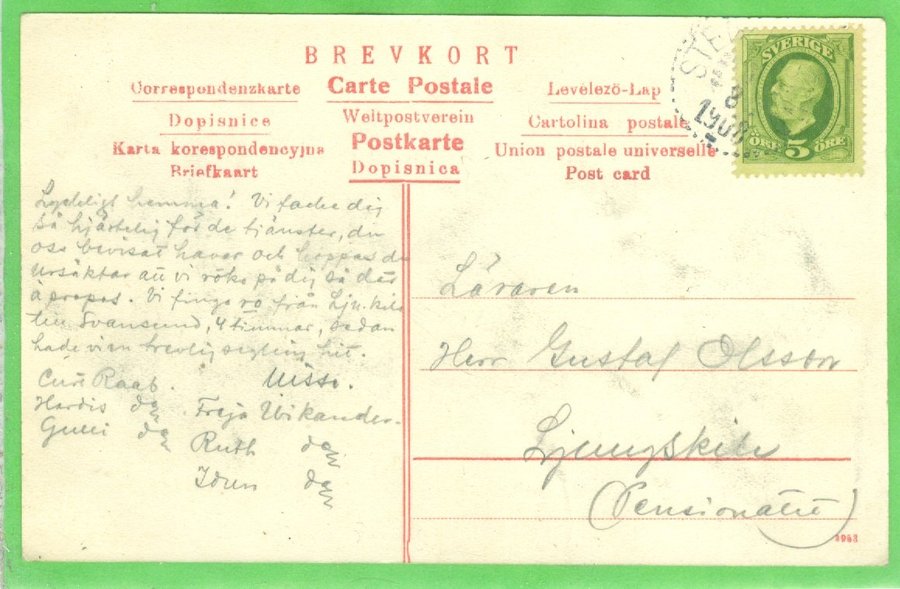 BREVKORT
Correspondenzkarte Carte Postale Levelező-Lap
Dopisnice Weltpostverein Cartolina postale
Karta korespondencyjna Postkarte Union postale universelle
Briefkaart Dopisnica Post card
SVERIGE
ÖRE 5 ÖRE
STE
8
190
Lyckligt hemma! Vi tacka dig
så hjärtelig för de tjänster, du
oss bevisat haver och hoppas du
ursäktar att vi röko på dig så där
à propos. Vi fingo ro från Ljungskile
till Svansund, 4 timmar, sedan
hade vi en trevlig segling hit.
Curt Raab. Nisse.
Hardis do Freja Wikander.
Gulli do Ruth do
Idun do
Läraren
Herr Gustaf Olsson
Ljungskile
(Pensionatet)